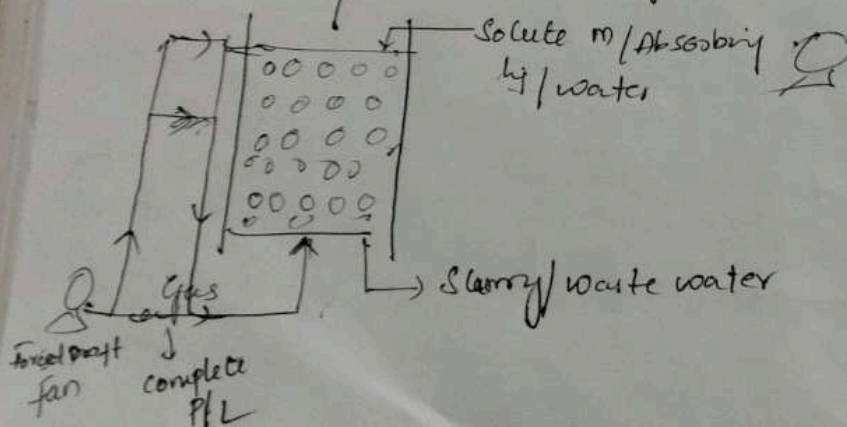 Solute m/Absorbing
liq/water
Slurry/waste water
Gas
Forced Draft
fan
complete
P/L